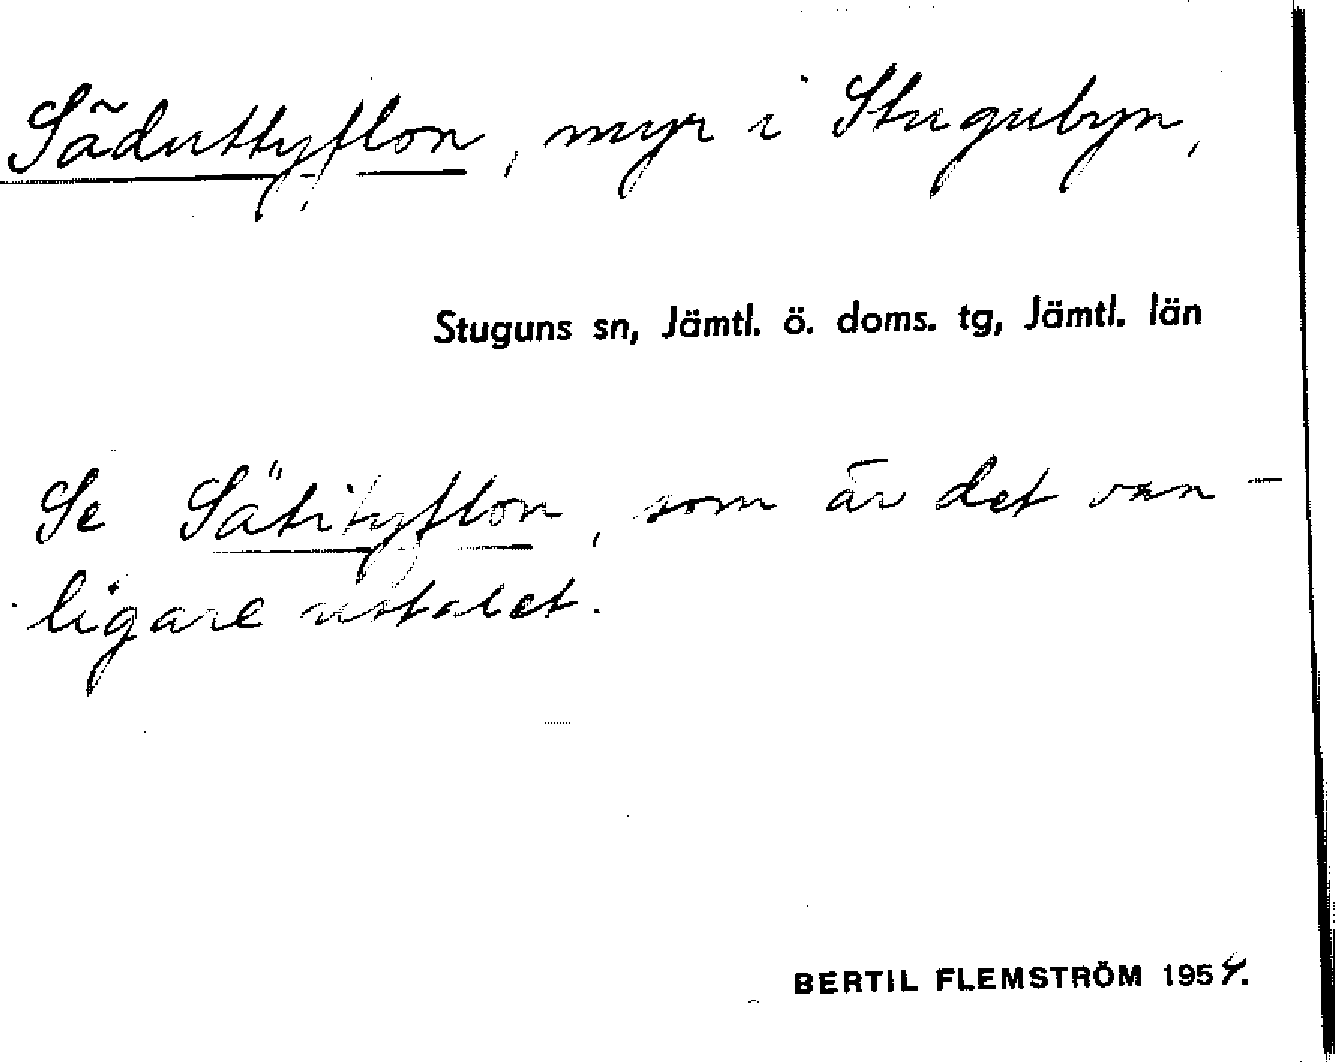 Säduttyflon, myr i Stugubyn,
Stuguns sn, Jämtl. ö. doms. tg, Jämtl. län
Se Sätityflon, som är det van-
ligare uttalet.
BERTIL FLEMSTRÖM 1954.